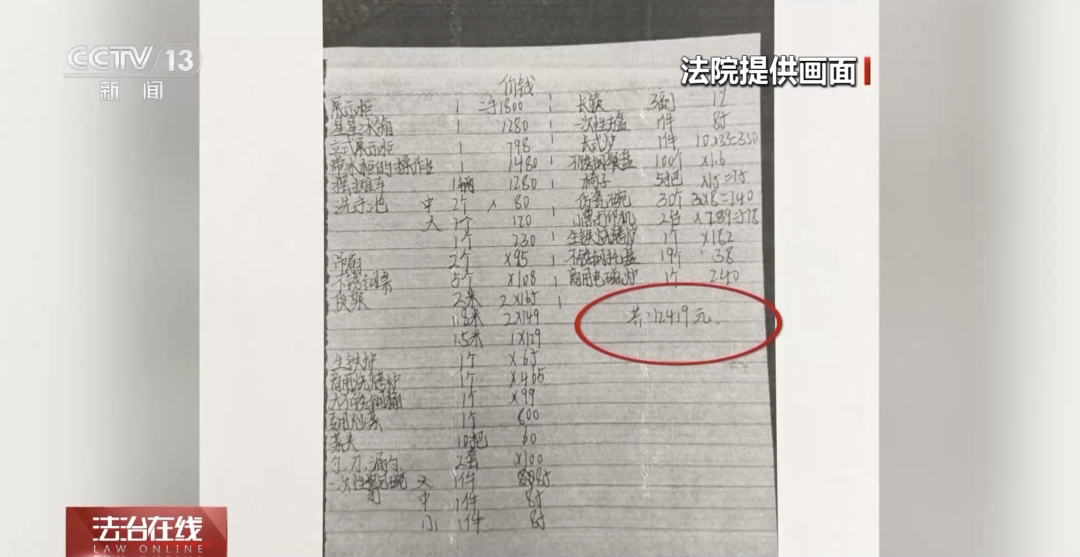 CCTV 13
新闻
法院提供画面
价钱
展示柜 1 二手1800
星星冰箱 1 1280
立式展示柜 1 798
带水柜的操作台 1 1480
摆摊车 1辆 1280
洗手池 中 2个 × 80
大 1个 120
1个 230
2个 ×95
不锈钢 5个 ×108
货架 2米 2×165
1.8米 2×149
1.5米 1×129
生铁炉 1个 ×65
商用烧烤炉 1个 ×405
大不锈钢 1个 ×99
商用 1个 600
10把 60
勺.刀.漏勺 2套 ×100
一次性 碗 大 1件 85
中 1件 85
小 1件 85
长筷 3 12
一次性 盘 1件 85
1件 10×33=330
不锈钢餐盘 100个 ×1.6
椅子 5把 ×15=75
仿瓷碗 30个 30×8=240
小票打印机 2台 ×289=578
生铁烧烤炉 1个 ×162
不锈钢托盘 19个 38
商用电磁炉 1个 240
共:12419元.
法治在线
LAW ONLINE